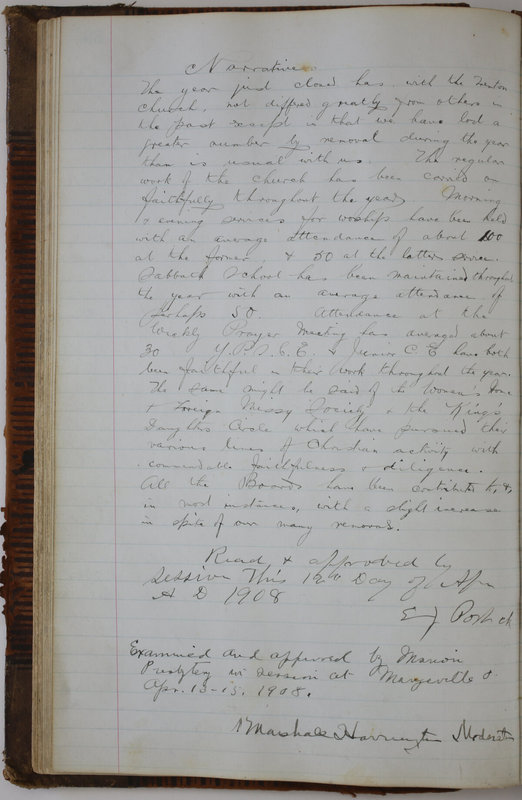 Narrative
The year just closed has with the Trenton
church, not differed greatly from others in
the past except in that we have lost a
greater number by removal during the year
than is usual with us. The regular
work of the church has been carried on
faithfully throughout the year. Morning
& evening services for worship have been held
with an average attendance of about 100
at the former, & 50 at the latter service.
Sabbath School has been maintained throughout
the year with an average attendance of
perhaps 50. Attendance at the
Weekly Prayer Meeting has averaged about
30 Y.P.S.C.E. & Junior C.E have both
been faithful in their work throughout the year.
The same might be said of the Women's Home
& Foreign Missy Society & the King's
Daughters Circle which have pursued their
various lines of Christian activity with
commendable faithfulness & diligence.
All the Boards have been contributed to, &,
in most instances, with a slight increase
in spite of our many removals.
Read & approved by
Session This 12th Day of Apr
A D 1908
E J Post ck
Examined and approved by Marion
Presbytery in session at Marysville O
Apr. 13-15, 1908.
Marshall Harrington Moderator